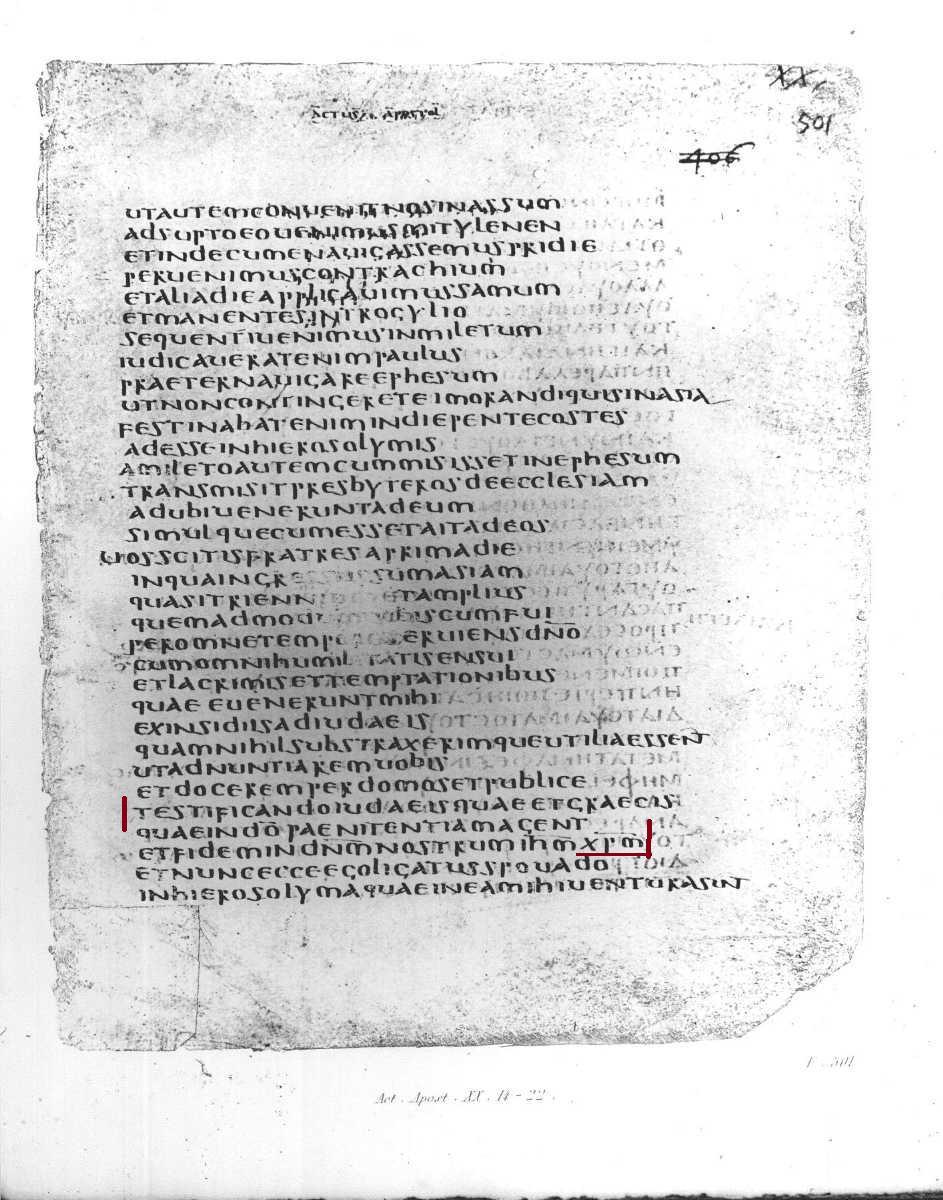 XX,
501
ACTUS APOSTOL
406
UTAUTEMCONUENITNOSINASSUM
ADSUPTOEOUENIMUSMITYLENEN
ETINDECUMENAUIGASSEMUSPRIDIE
PERUENIMUSCONTRACHIUM
ETALIADIEAPPLICAUIMUSSAMUM
ETMANENTESINTROGYLIO
SEQUENTIUENIMUSINMILETUM
IUDICAUERATENIMPAULUS
PRAETERNAUIGAREEPHESUM
UTNONCONTINGERETEIMORANDIQUISINASIA
FESTINABATENIMINDIEPENTECOSTES
ADESSEINHIEROSOLYMIS
AMILETOAUTEMCUMMISISSETINEPHESUM
TRANSMISITPRESBYTEROSDEECCLESIAM
ADUBIUENERUNTADEUM
SIMULQUECUMESSETAITADEOS
UOSSCITISFRATRESAPRIMADIE
INQUAINGRESSUSSUMASIAM
QUASITRIENN ETAMPLIUS
QUEMADMOD BISCUMFUI
PEROMNETEMP ERUIENSDN̅O̅
CUMOMNIHUMILITATISENSUI
ETLACRIMISETTEMPTATIONIBUS
QUAEEUENERUNTMIHI
EXINSIDIISADIUDAEIS
QUAMNIHILSUBSTRAXERIMQUEUTILIAESSENT
UTADNUNTIAREMUOBIS
ETDOCEREMPERDOMOSETPUBLICE
TESTIFICANDOIUDAEISQUAEETGRAECIS
QUAEINDO̅PAENITENTIAMAGENT
ETFIDEMINDN̅M̅NOSTRUMIHM̅XPM̅
ETNUNCECCEEGOLIGATUSSPOUADO
INHIEROSOLYMAQUAEINEAMIHIUENTURASINT
F. 501
Act. Apost. XX. 14-22.